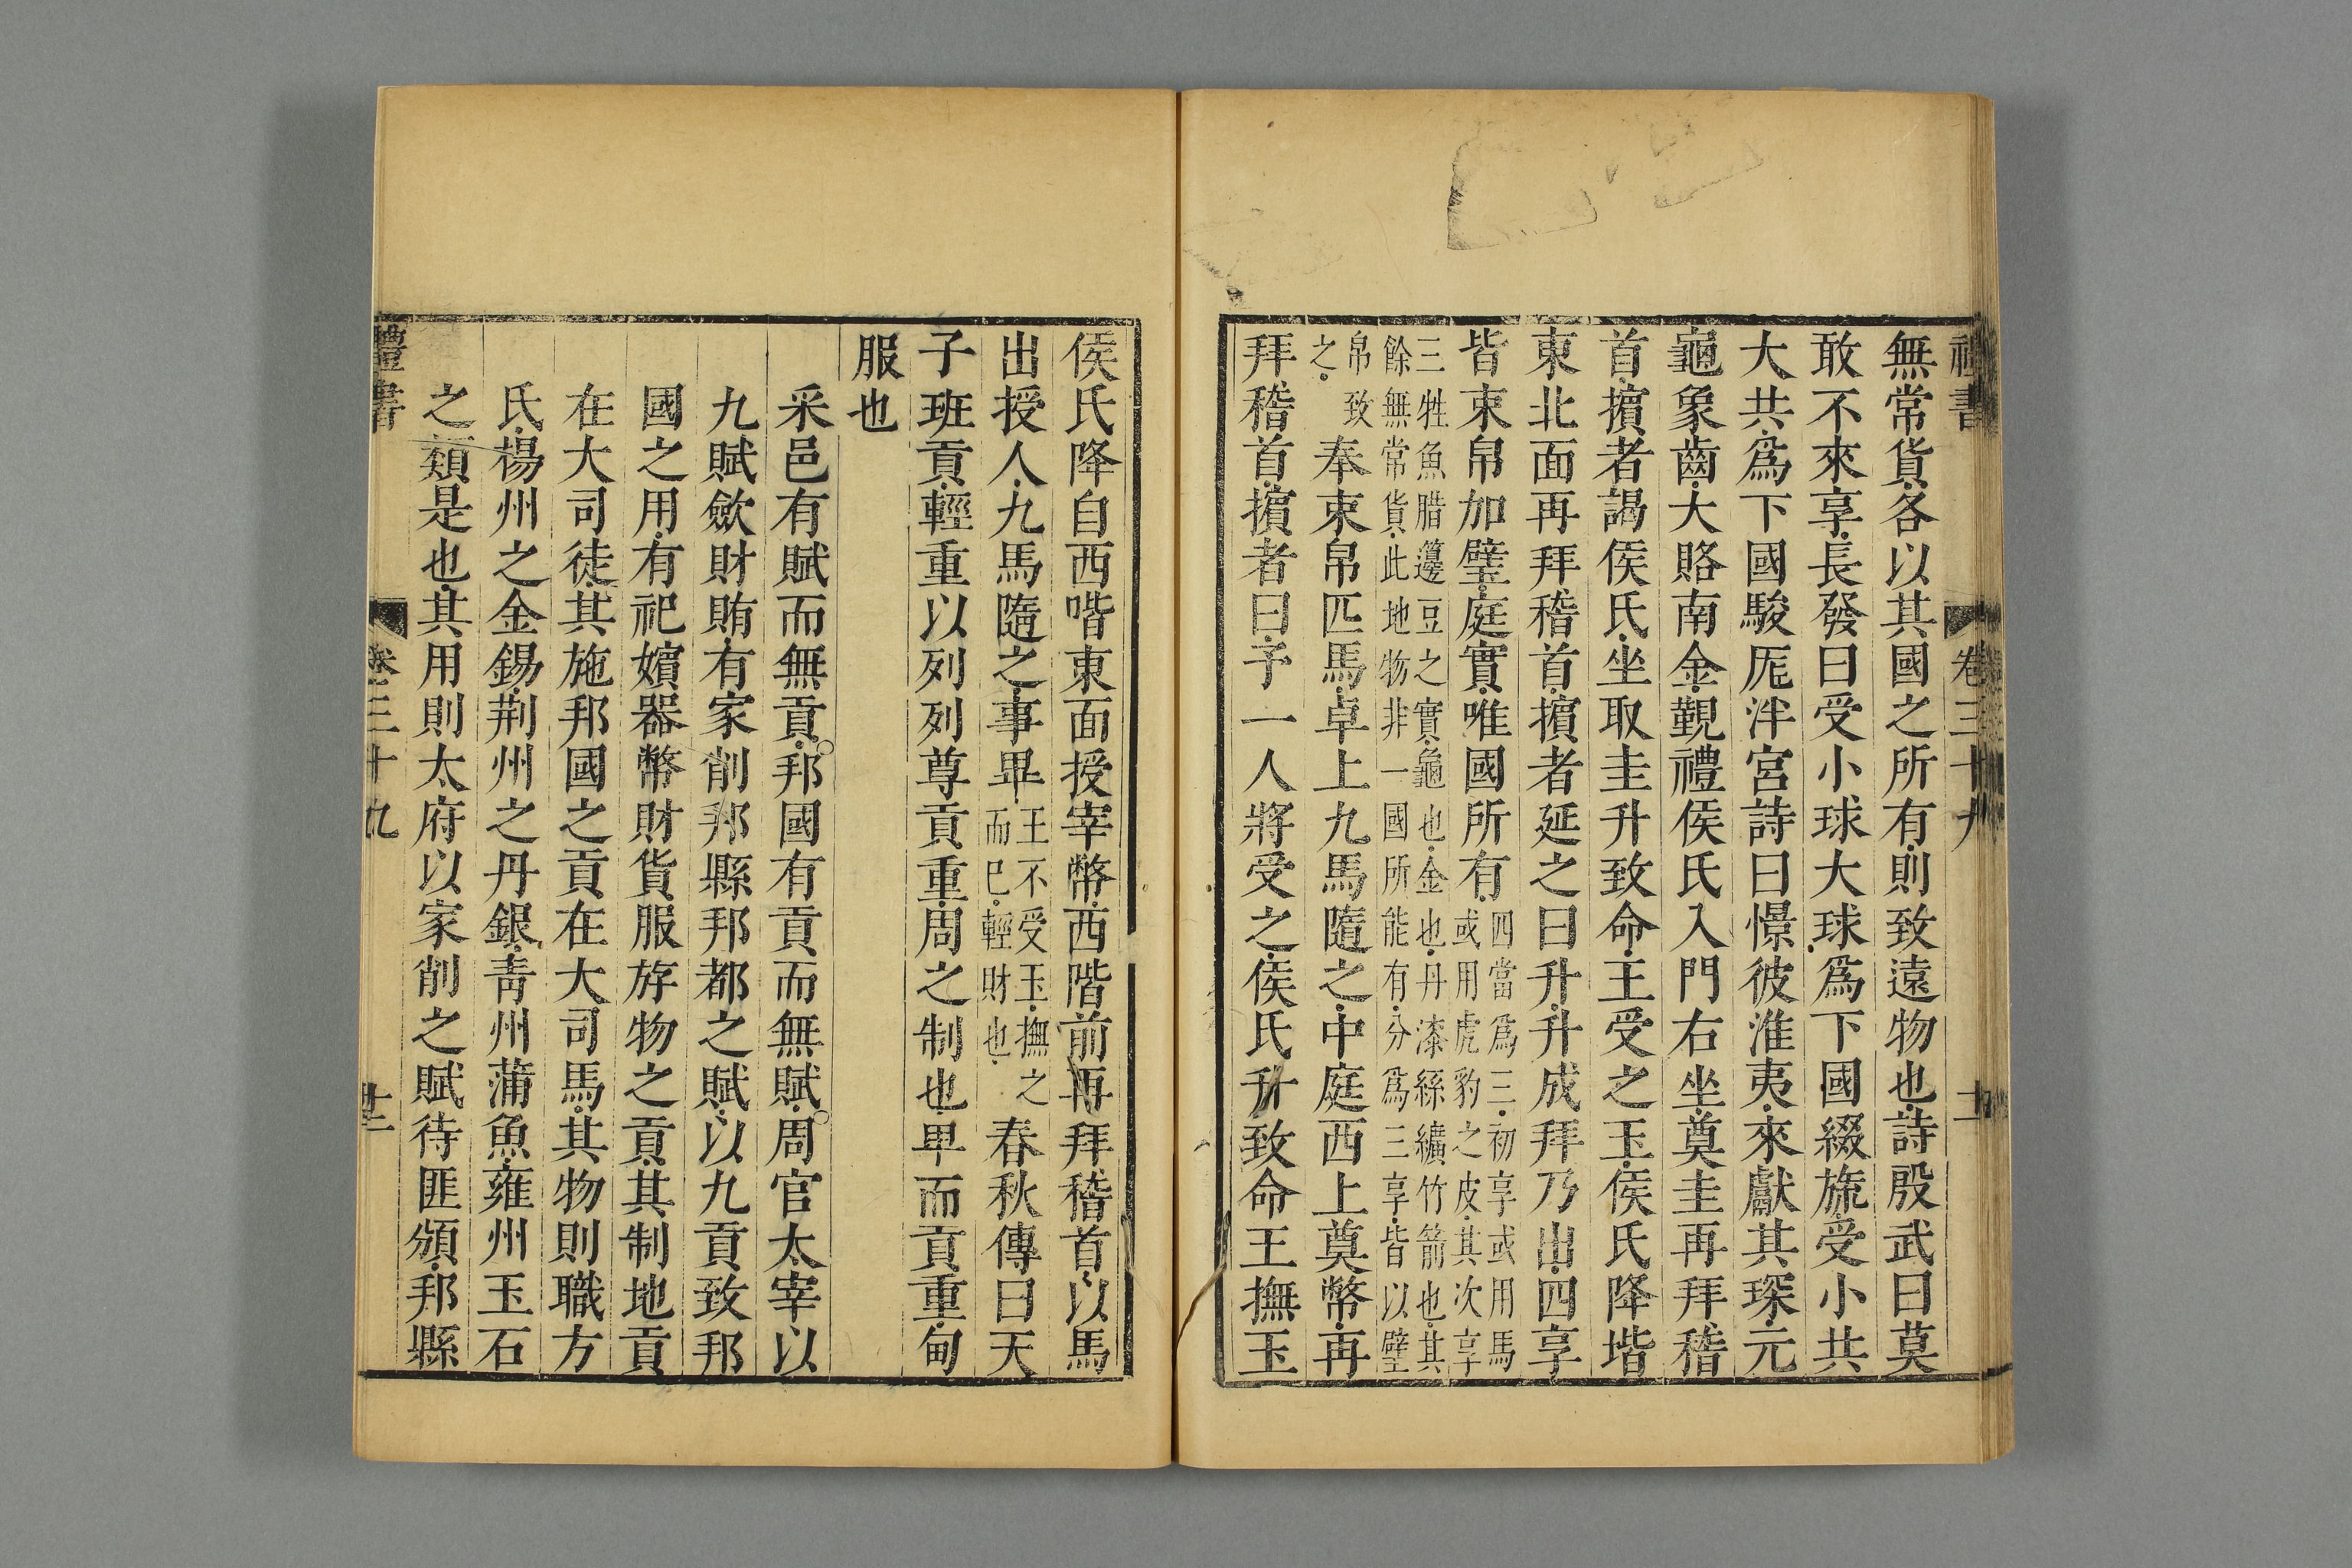 禮書 卷三十九 十一
無常貨各以其國之所有則致遠物也詩殷武曰莫
敢不來享長發曰受小球大球爲下國綴旒受小共
大共爲下國駿厖泮宮詩曰憬彼淮夷來獻其琛元
龜象齒大賂南金覲禮侯氏入門右坐奠圭再拜稽
首擯者謁侯氏坐取圭升致命王受之玉侯氏降堦
東北面再拜稽首擯者延之曰升升成拜乃出四享
皆束帛加璧庭實唯國所有四當爲三初享或用馬或用虎豹之皮其次享
三牲魚腊籩豆之實龜也金也丹漆絲纊竹箭也其餘無常貨此地物非一國所能有分爲三享皆以璧
帛致之奉束帛匹馬卓上九馬隨之中庭西上奠幣再
拜稽首擯者曰予一人將受之侯氏升致命王撫玉
侯氏降自西喈東面授宰幣西階前再拜稽首以馬
出授人九馬隨之事畢王不受玉撫之而已輕財也春秋傳曰天
子班貢輕重以列列尊貢重周之制也卑而貢重甸
服也
采邑有賦而無貢邦國有貢而無賦周官太宰以
九賦歛財賄有家削邦縣邦都之賦以九貢致邦
國之用有祀嬪器幣財貨服斿物之貢其制地貢
在大司徒其施邦國之貢在大司馬其物則職方
氏楊州之金錫荆州之丹銀青州蒲魚雍州玉石
之類是也其用則太府以家削之賦待匪頒邦縣
禮書 卷三十九 十二